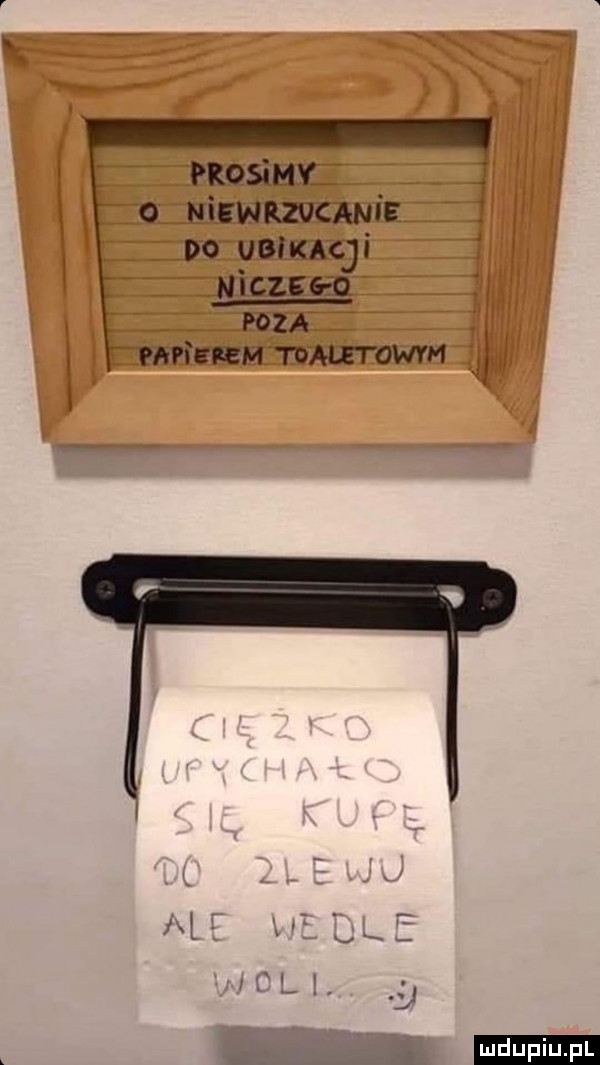 PROSiMY
O NiEWRZUCANiE
DO UBiKACJi
NiCZEGO
POZA
PAPiEREM TOALETOWYM
CIĘŻKO
UPYCHAŁO
SIĘ KUPĘ
DO ZLEWU
ALE WEDLE
WOLI... :)
mdupiu.pl